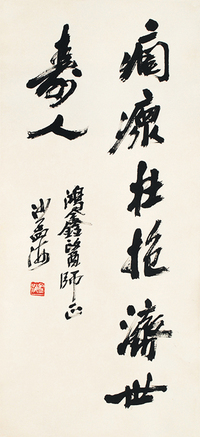 痌瘝在抱濟世
壽人
鴻鑫醫師正
沙孟海